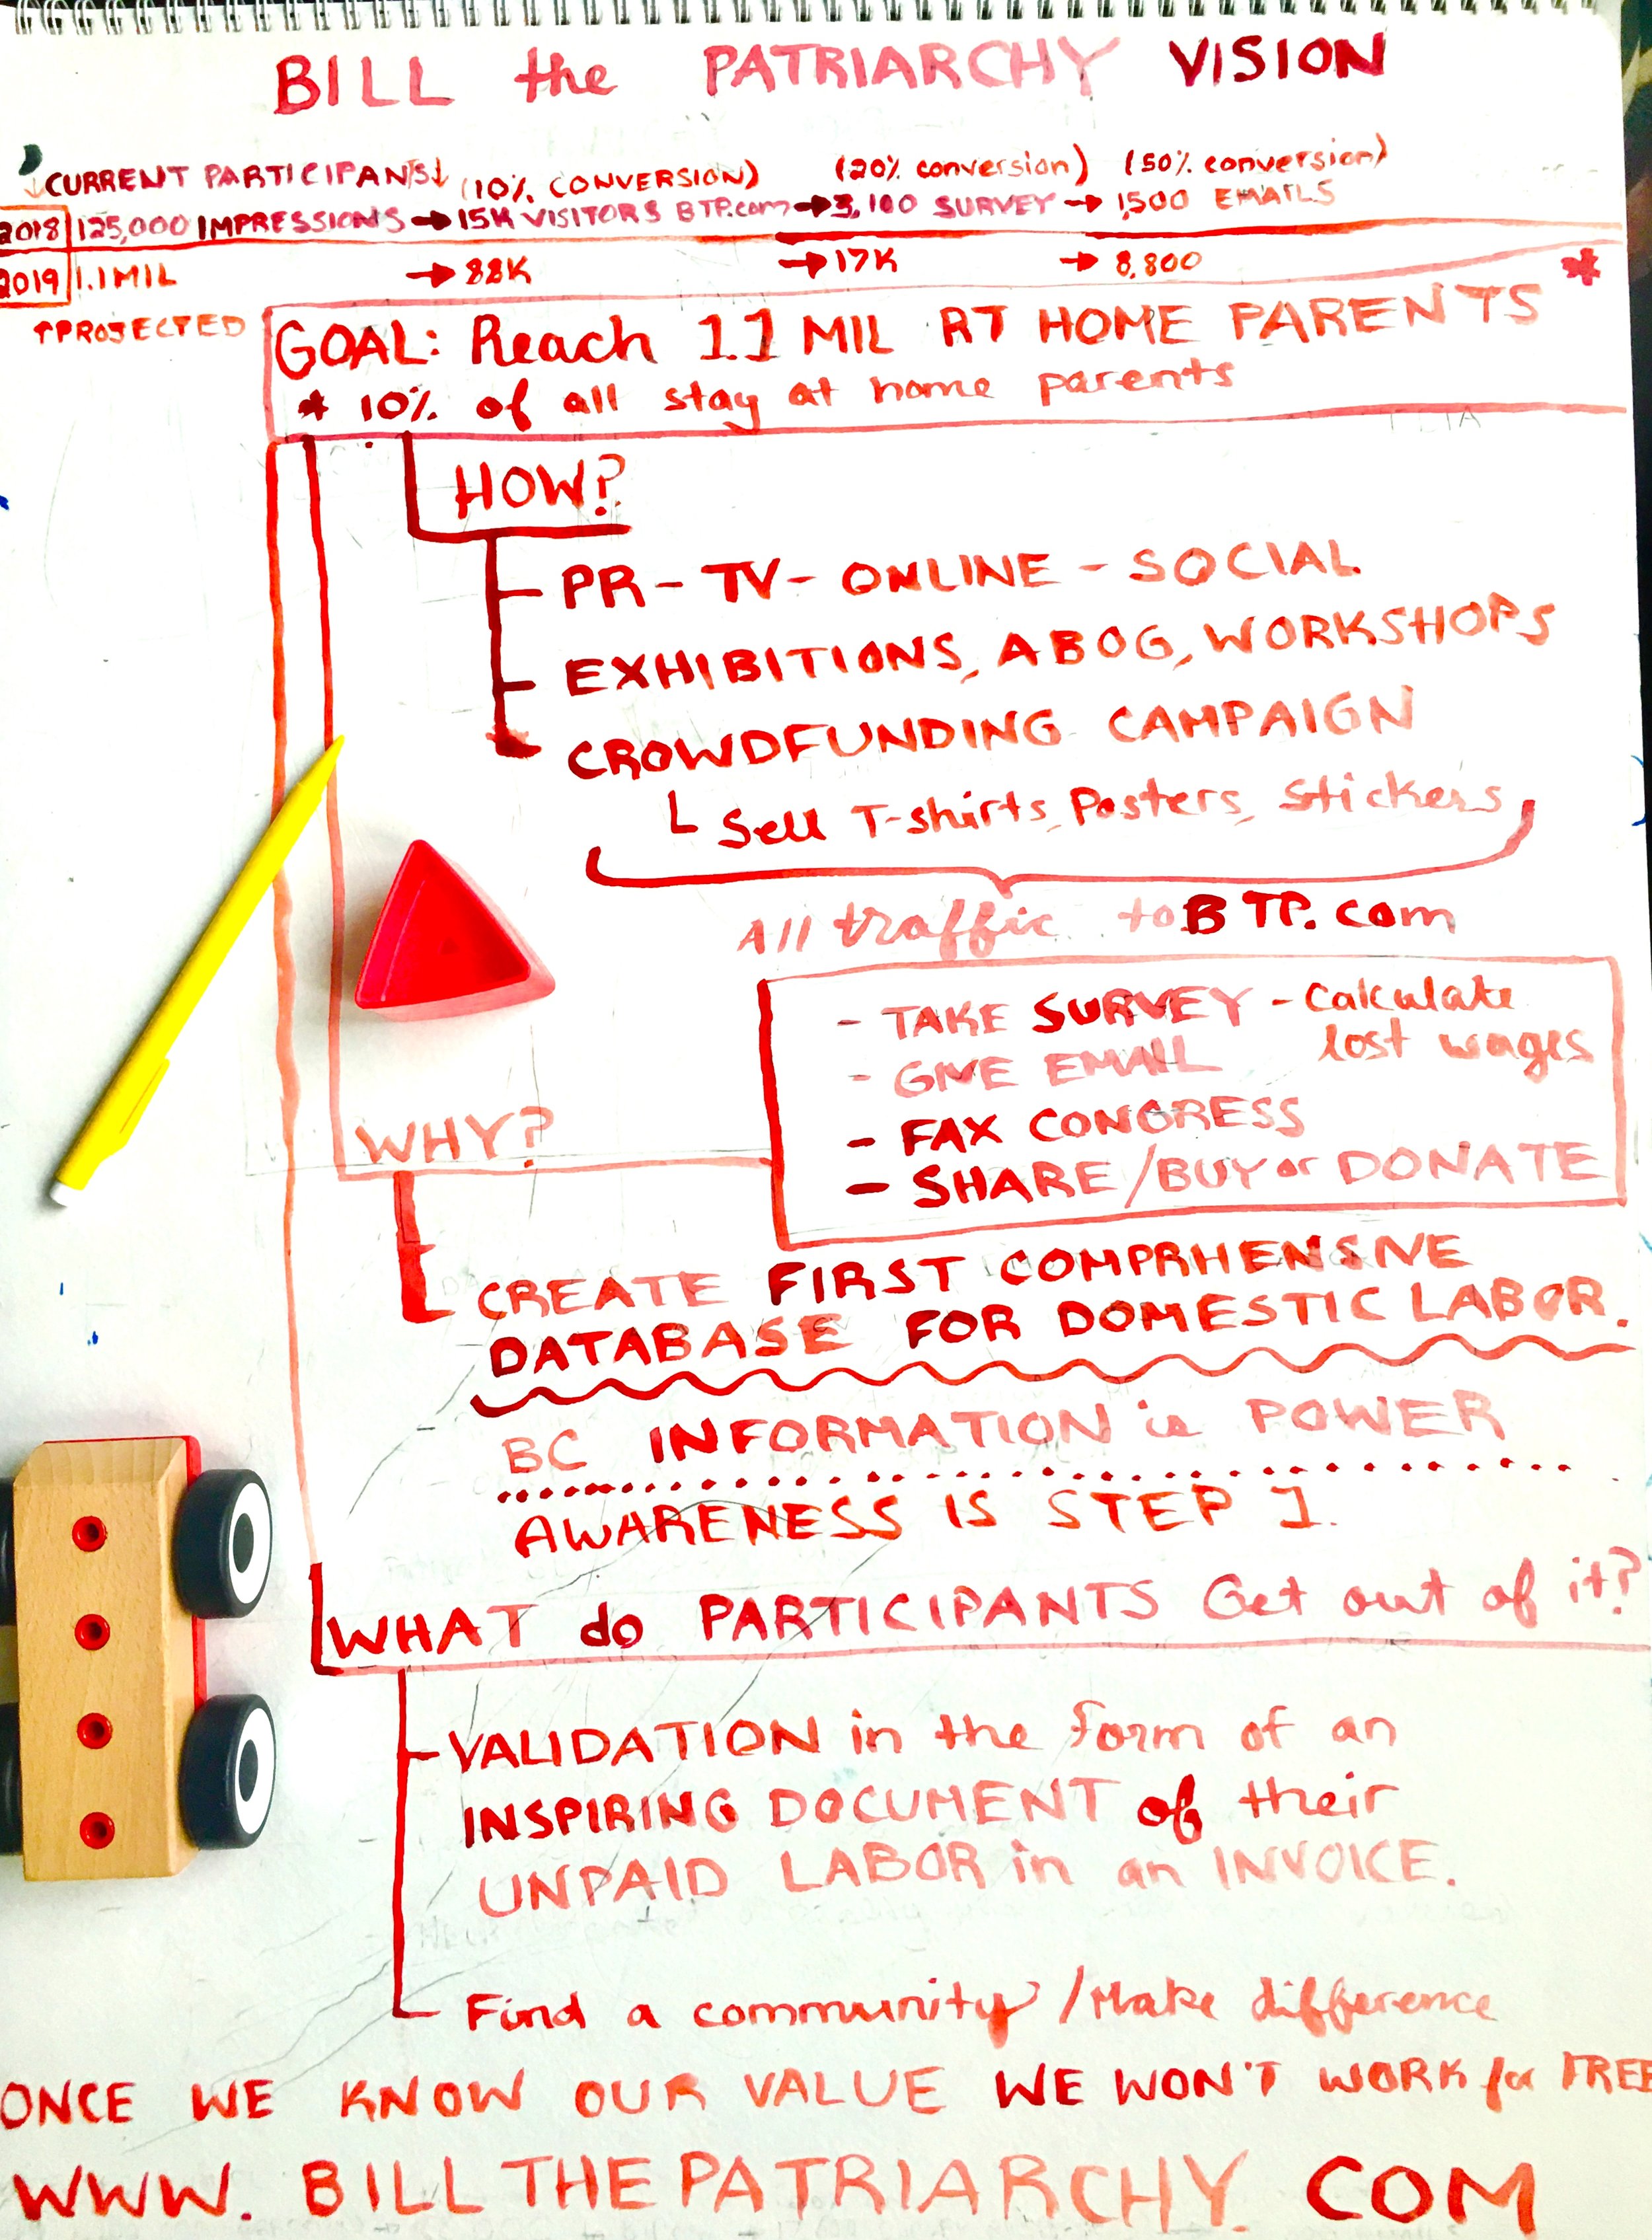 BILL the PATRIARCHY VISION
↓CURRENT PARTICIPANTS↓ (10% CONVERSION) (20% conversion) (50% conversion)
2018 125,000 IMPRESSIONS → 15K VISITORS BTP.com → 3,100 SURVEY → 1,500 EMAILS
2019 1.1 MIL → 88K → 17K → 8,800
↑PROJECTED
GOAL: Reach 1.1 MIL AT HOME PARENTS *
* 10% of all stay at home parents
HOW?
PR - TV - ONLINE - SOCIAL
EXHIBITIONS, ABOG, WORKSHOPS
CROWDFUNDING CAMPAIGN
Sell T-shirts, Posters, Stickers
All traffic to BTP.com
- TAKE SURVEY - Calculate
lost wages
- GIVE EMAIL
- FAX CONGRESS
- SHARE/BUY or DONATE
WHY?
CREATE FIRST COMPRHENSIVE
DATABASE FOR DOMESTIC LABOR.
BC INFORMATION is POWER
AWARENESS IS STEP 1.
WHAT do PARTICIPANTS Get out of it?
VALIDATION in the form of an
INSPIRING DOCUMENT of their
UNPAID LABOR in an INVOICE.
Find a community / Make difference
ONCE WE KNOW OUR VALUE WE WON'T WORK for FREE
WWW.BILLTHEPATRIARCHY.COM